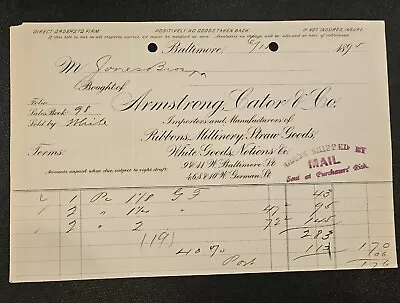 DIRECT ORDERS TO FIRM. POSITIVELY NO GOODS TAKEN BACK. IF NOT INSURED, INSURE.
Baltimore 189
M Jones Bros
Bought of Armstrong, Cator & Co.
Folio
Sales Book 98
Sold by White
Importers and Manufacturers of
Ribbons, Millinery, Straw Goods,
White Goods, Notions &c.
Terms:
9 & 11 W. Baltimore St.
4, 6, 8 & 10 W. German St.
Amounts unpaid when due, subject to sight draft.
GOODS SHIPPED BY
MAIL
Sent at Purchasers' Risk.
1 Pc 1/8 G F 43
1 " 1/4 " 47 95
" 2 " 72 145
283
(19) 40 % 113 170
Post 06
176